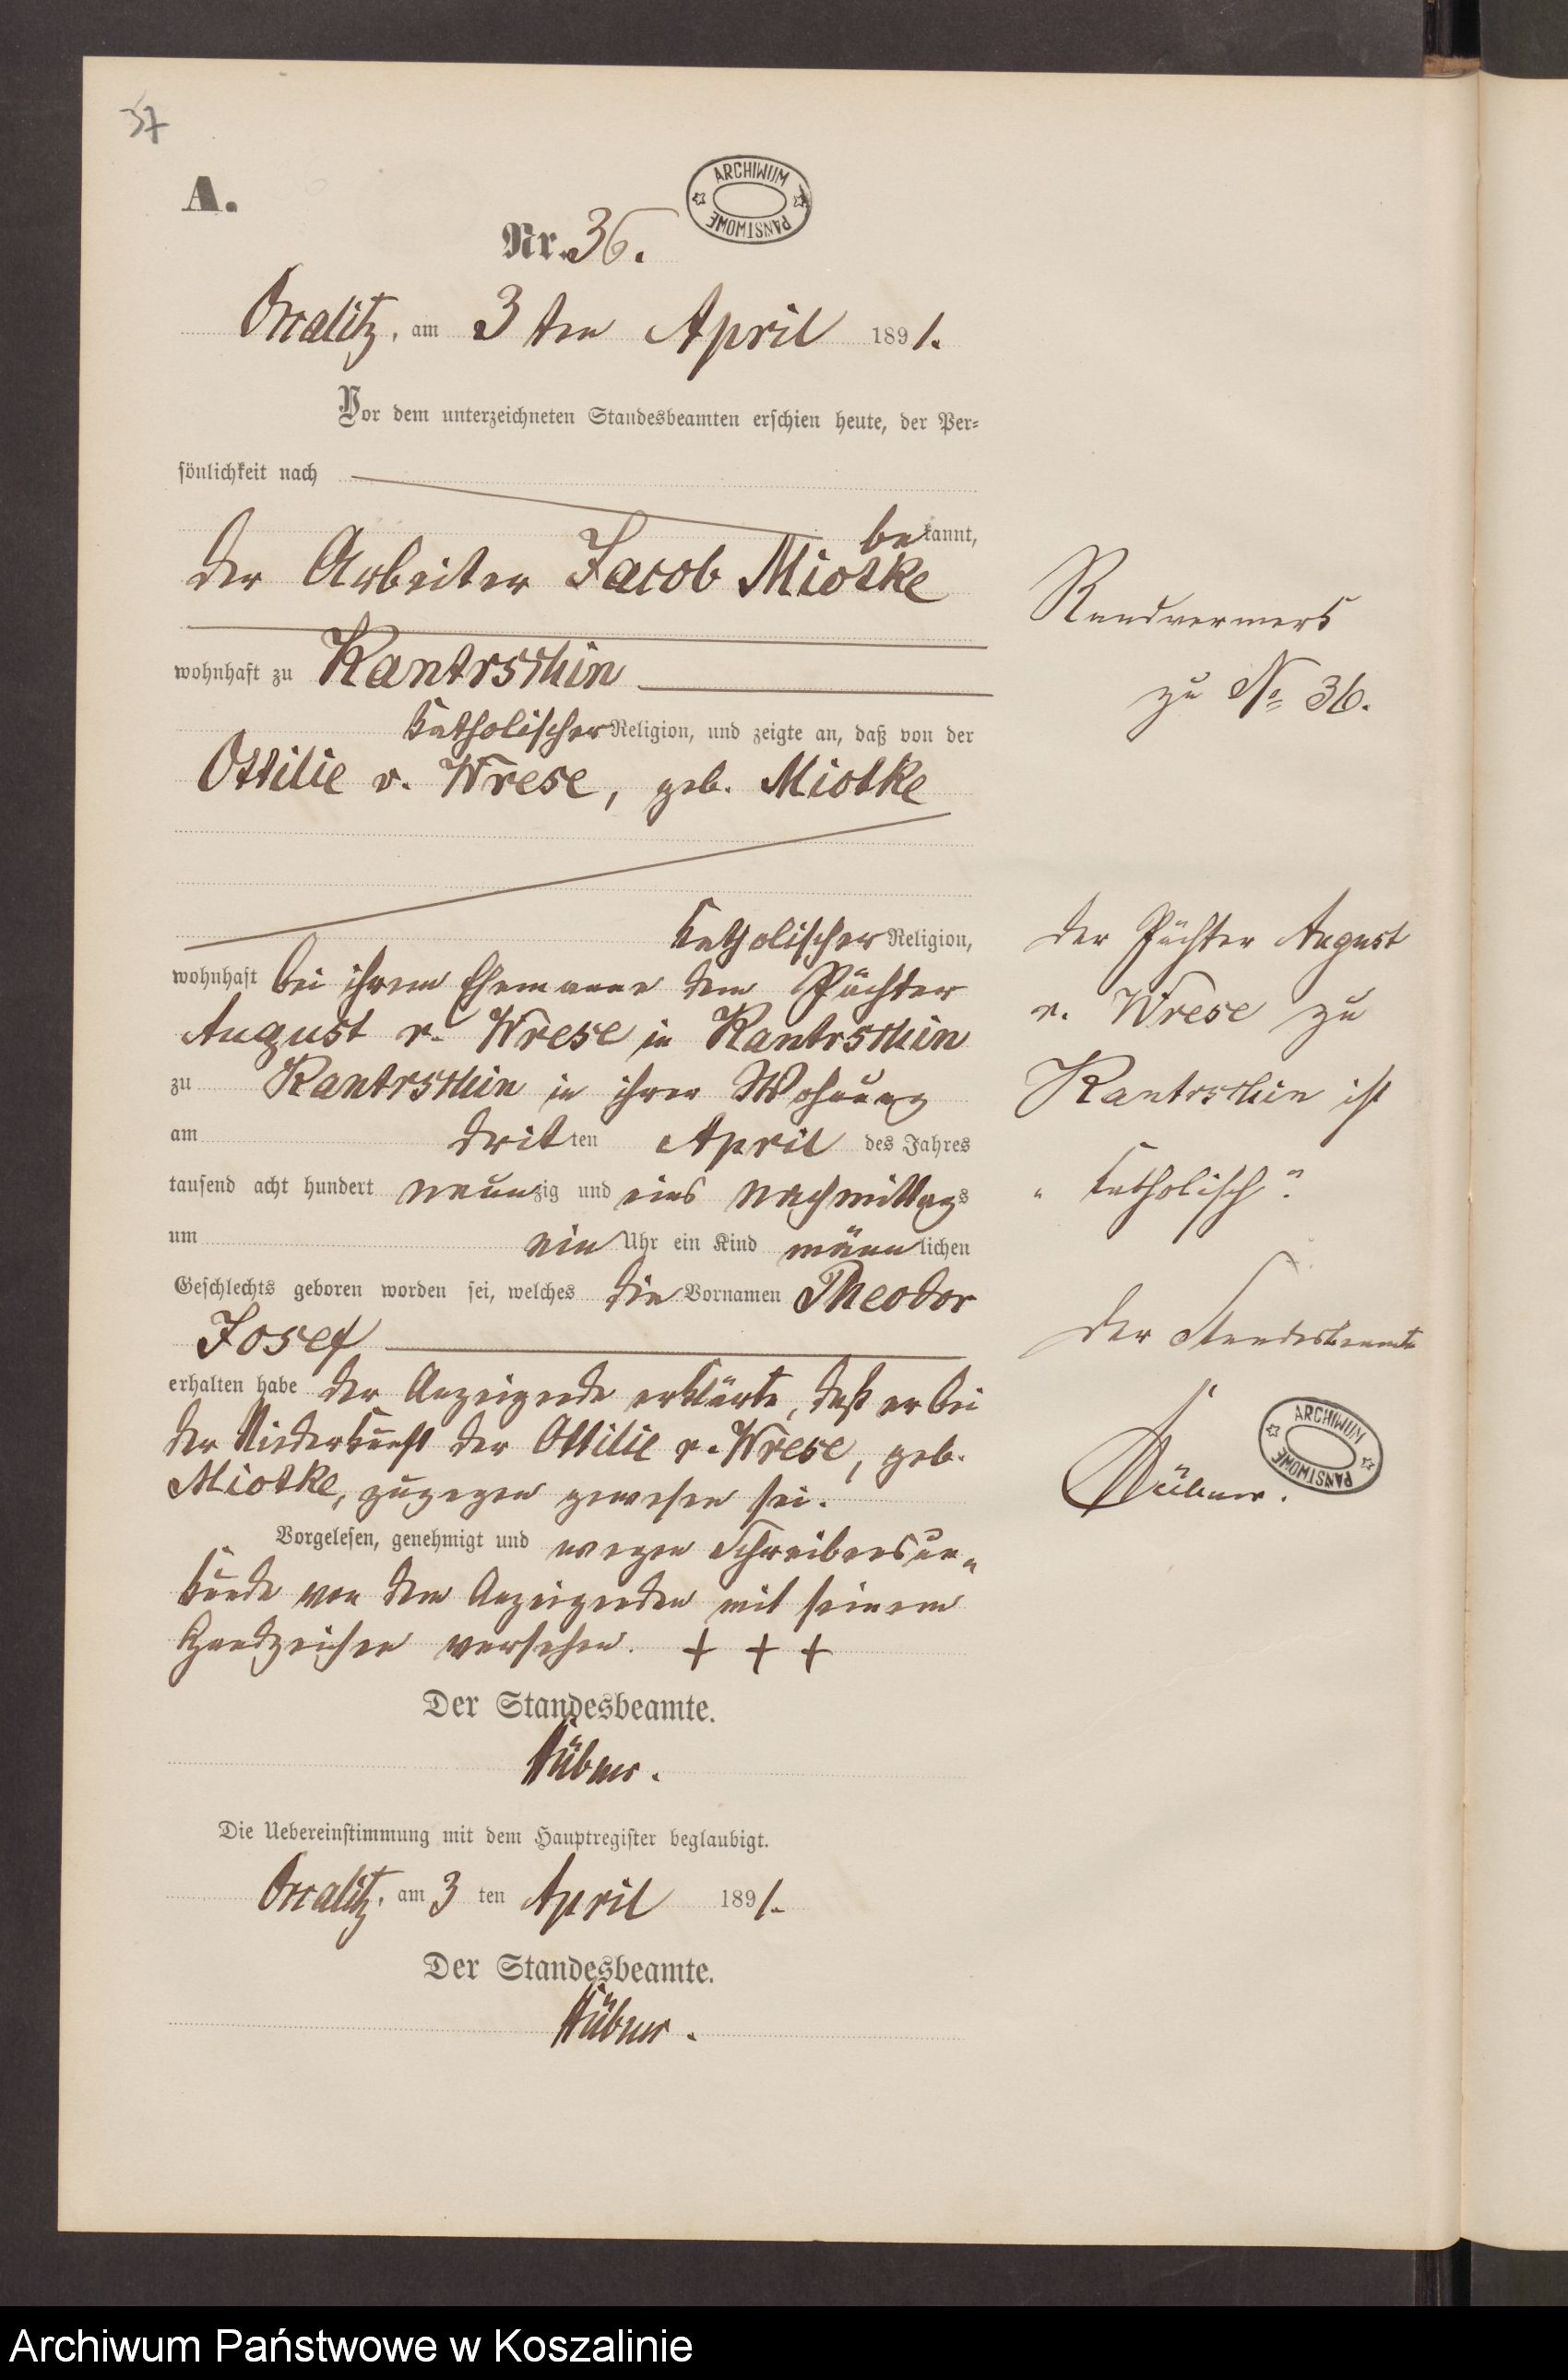 37
A.
ARCHIWUM PAŃSTWOWE
Nr. 36.
Occalitz, am 3 ten April 1891.
Vor dem unterzeichneten Standesbeamten erschien heute, der Per-
sönlichkeit nach
bekannt,
der Arbeiter Jacob Miotke
wohnhaft zu Kantrschin
katholischer Religion, und zeigte an, daß von der
Ottilie v. Wrese, geb. Miotke
katholischer Religion,
wohnhaft bei ihrem Ehemanne dem Pächter
August v. Wrese in Kantrschin
zu Kantrschin in ihrer Wohnung
am dritten April des Jahres
tausend acht hundert neunzig und eins nachmittags
um ein Uhr ein Kind männlichen
Geschlechts geboren worden sei, welches die Vornamen Theodor
Josef
erhalten habe der Anzeigende erklärte, daß er bei
der Niederkunft der Ottilie v. Wrese, geb.
Miotke, zugegen gewesen sei.
Vorgelesen, genehmigt und wegen Schreibensun-
kunde von dem Anzeigenden mit seinem
Handzeichen versehen. + + +
Der Standesbeamte.
Hübner.
Die Uebereinstimmung mit dem Hauptregister beglaubigt.
Occalitz, am 3 ten April 1891.
Der Standesbeamte.
Hübner.
Randvermerk
zu No 36.
Der Pächter August
v. Wrese zu
Kantrschin ist
"katholisch".
Der Standesbeamte
Hübner.
ARCHIWUM PAŃSTWOWE
Archiwum Państwowe w Koszalinie